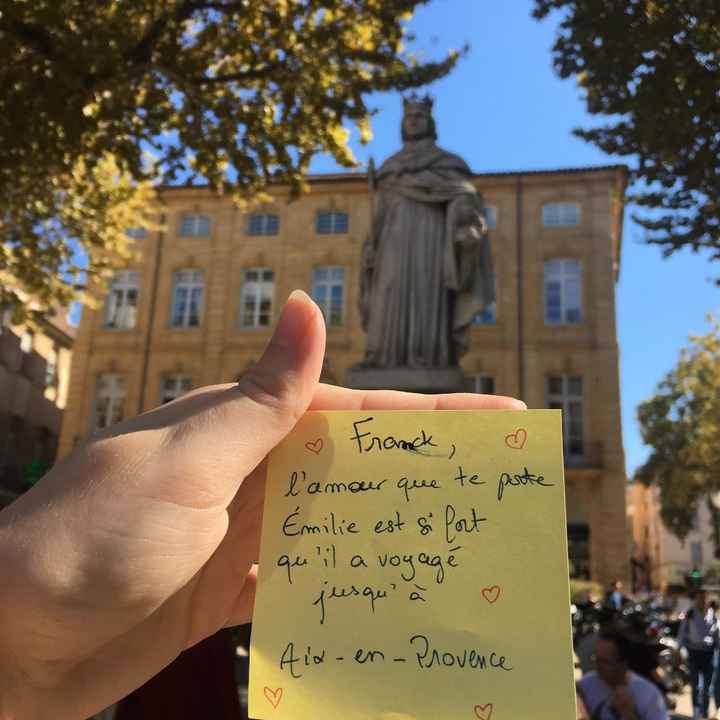 Franck,
l'amour que te porte
Émilie est si fort
qu'il a voyagé
jusqu'à
Aix-en-Provence